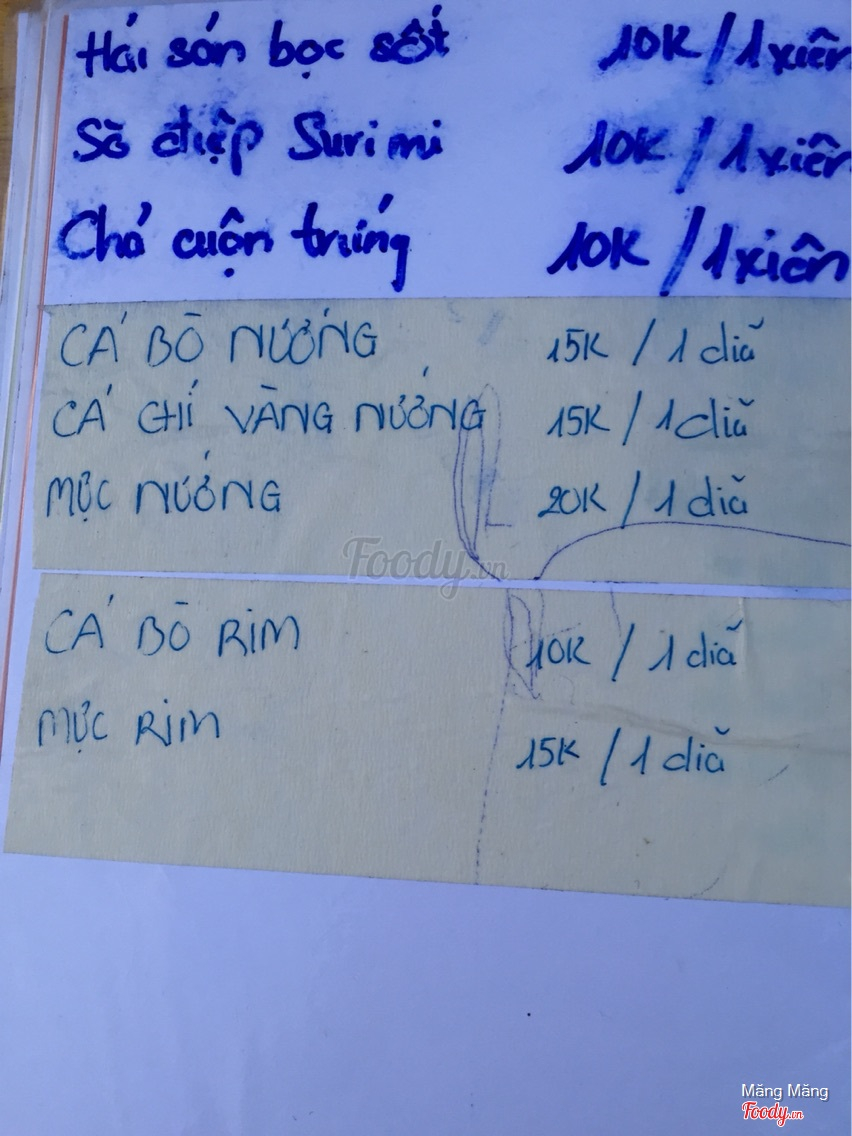 Hải sản bọc sốt 10K / 1 xiên
Sò điệp Surimi 10K / 1 xiên
Chả cuộn trứng 10K / 1 xiên
CÁ BÒ NƯỚNG 15K / 1 diã
CÁ CHỈ VÀNG NƯỚNG 15K / 1 diã
MỰC NƯỚNG 20K / 1 diã
Foody.vn
CÁ BÒ RIM 10K / 1 diã
MỰC RIM 15K / 1 diã
Măng Măng
Foody.vn